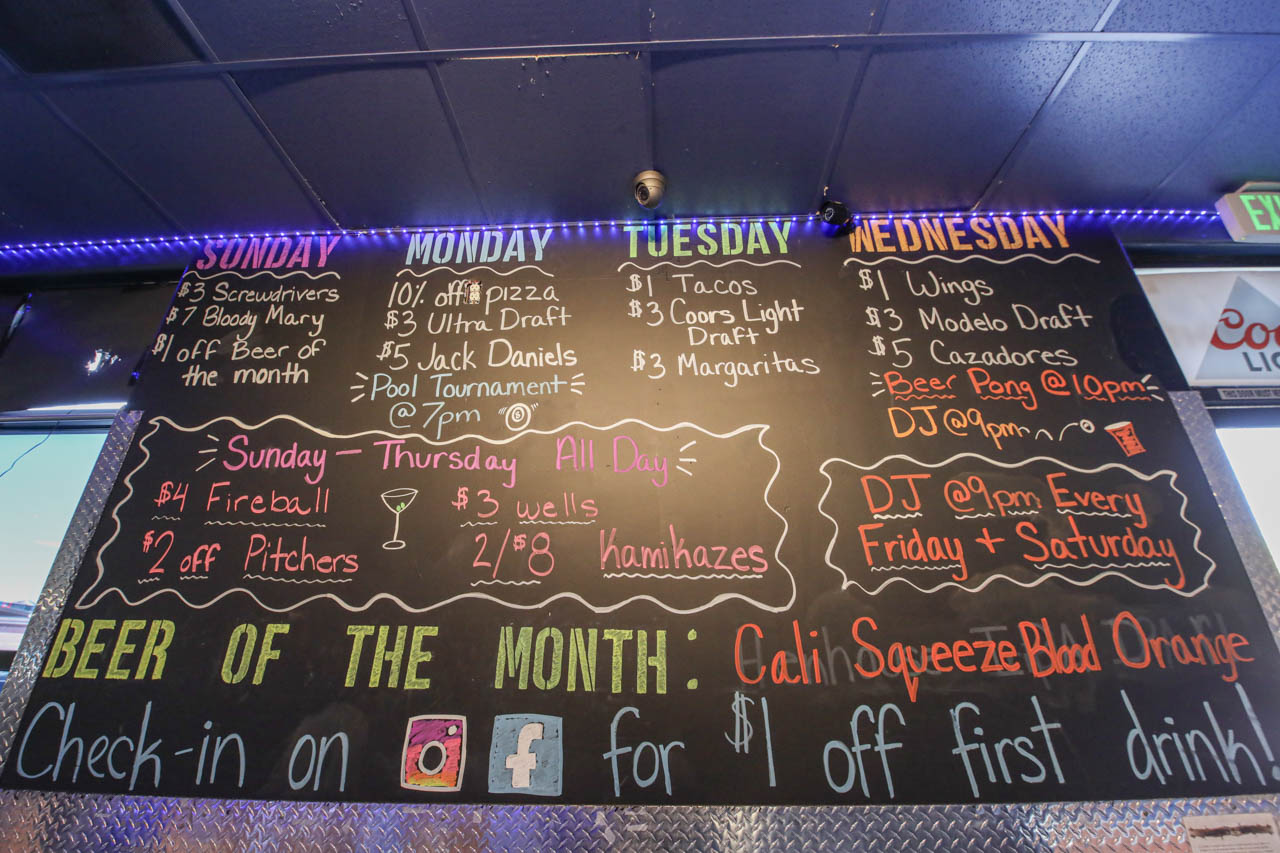 SUNDAY
$3 Screwdrivers
$7 Bloody Mary
$1 off Beer of
the month
MONDAY
10% off pizza
$3 Ultra Draft
$5 Jack Daniels
Pool Tournament
@ 7pm
TUESDAY
$1 Tacos
$3 Coors Light
Draft
$3 Margaritas
WEDNESDAY
$1 Wings
$3 Modelo Draft
$5 Cazadores
Beer Pong @ 10pm
DJ @ 9pm
Sunday - Thursday All Day
$4 Fireball
$3 wells
$2 off Pitchers
2/$8 Kamikazes
DJ @ 9pm Every
Friday + Saturday
BEER OF THE MONTH: Cali Squeeze Blood Orange
Check-in on f for $1 off first drink!